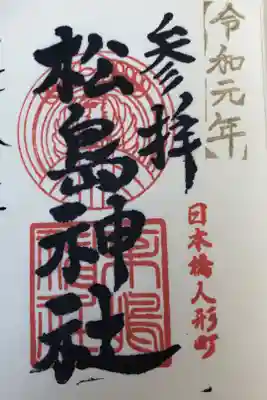 【令和元年】
参拝
松島神社
日本橋人形町